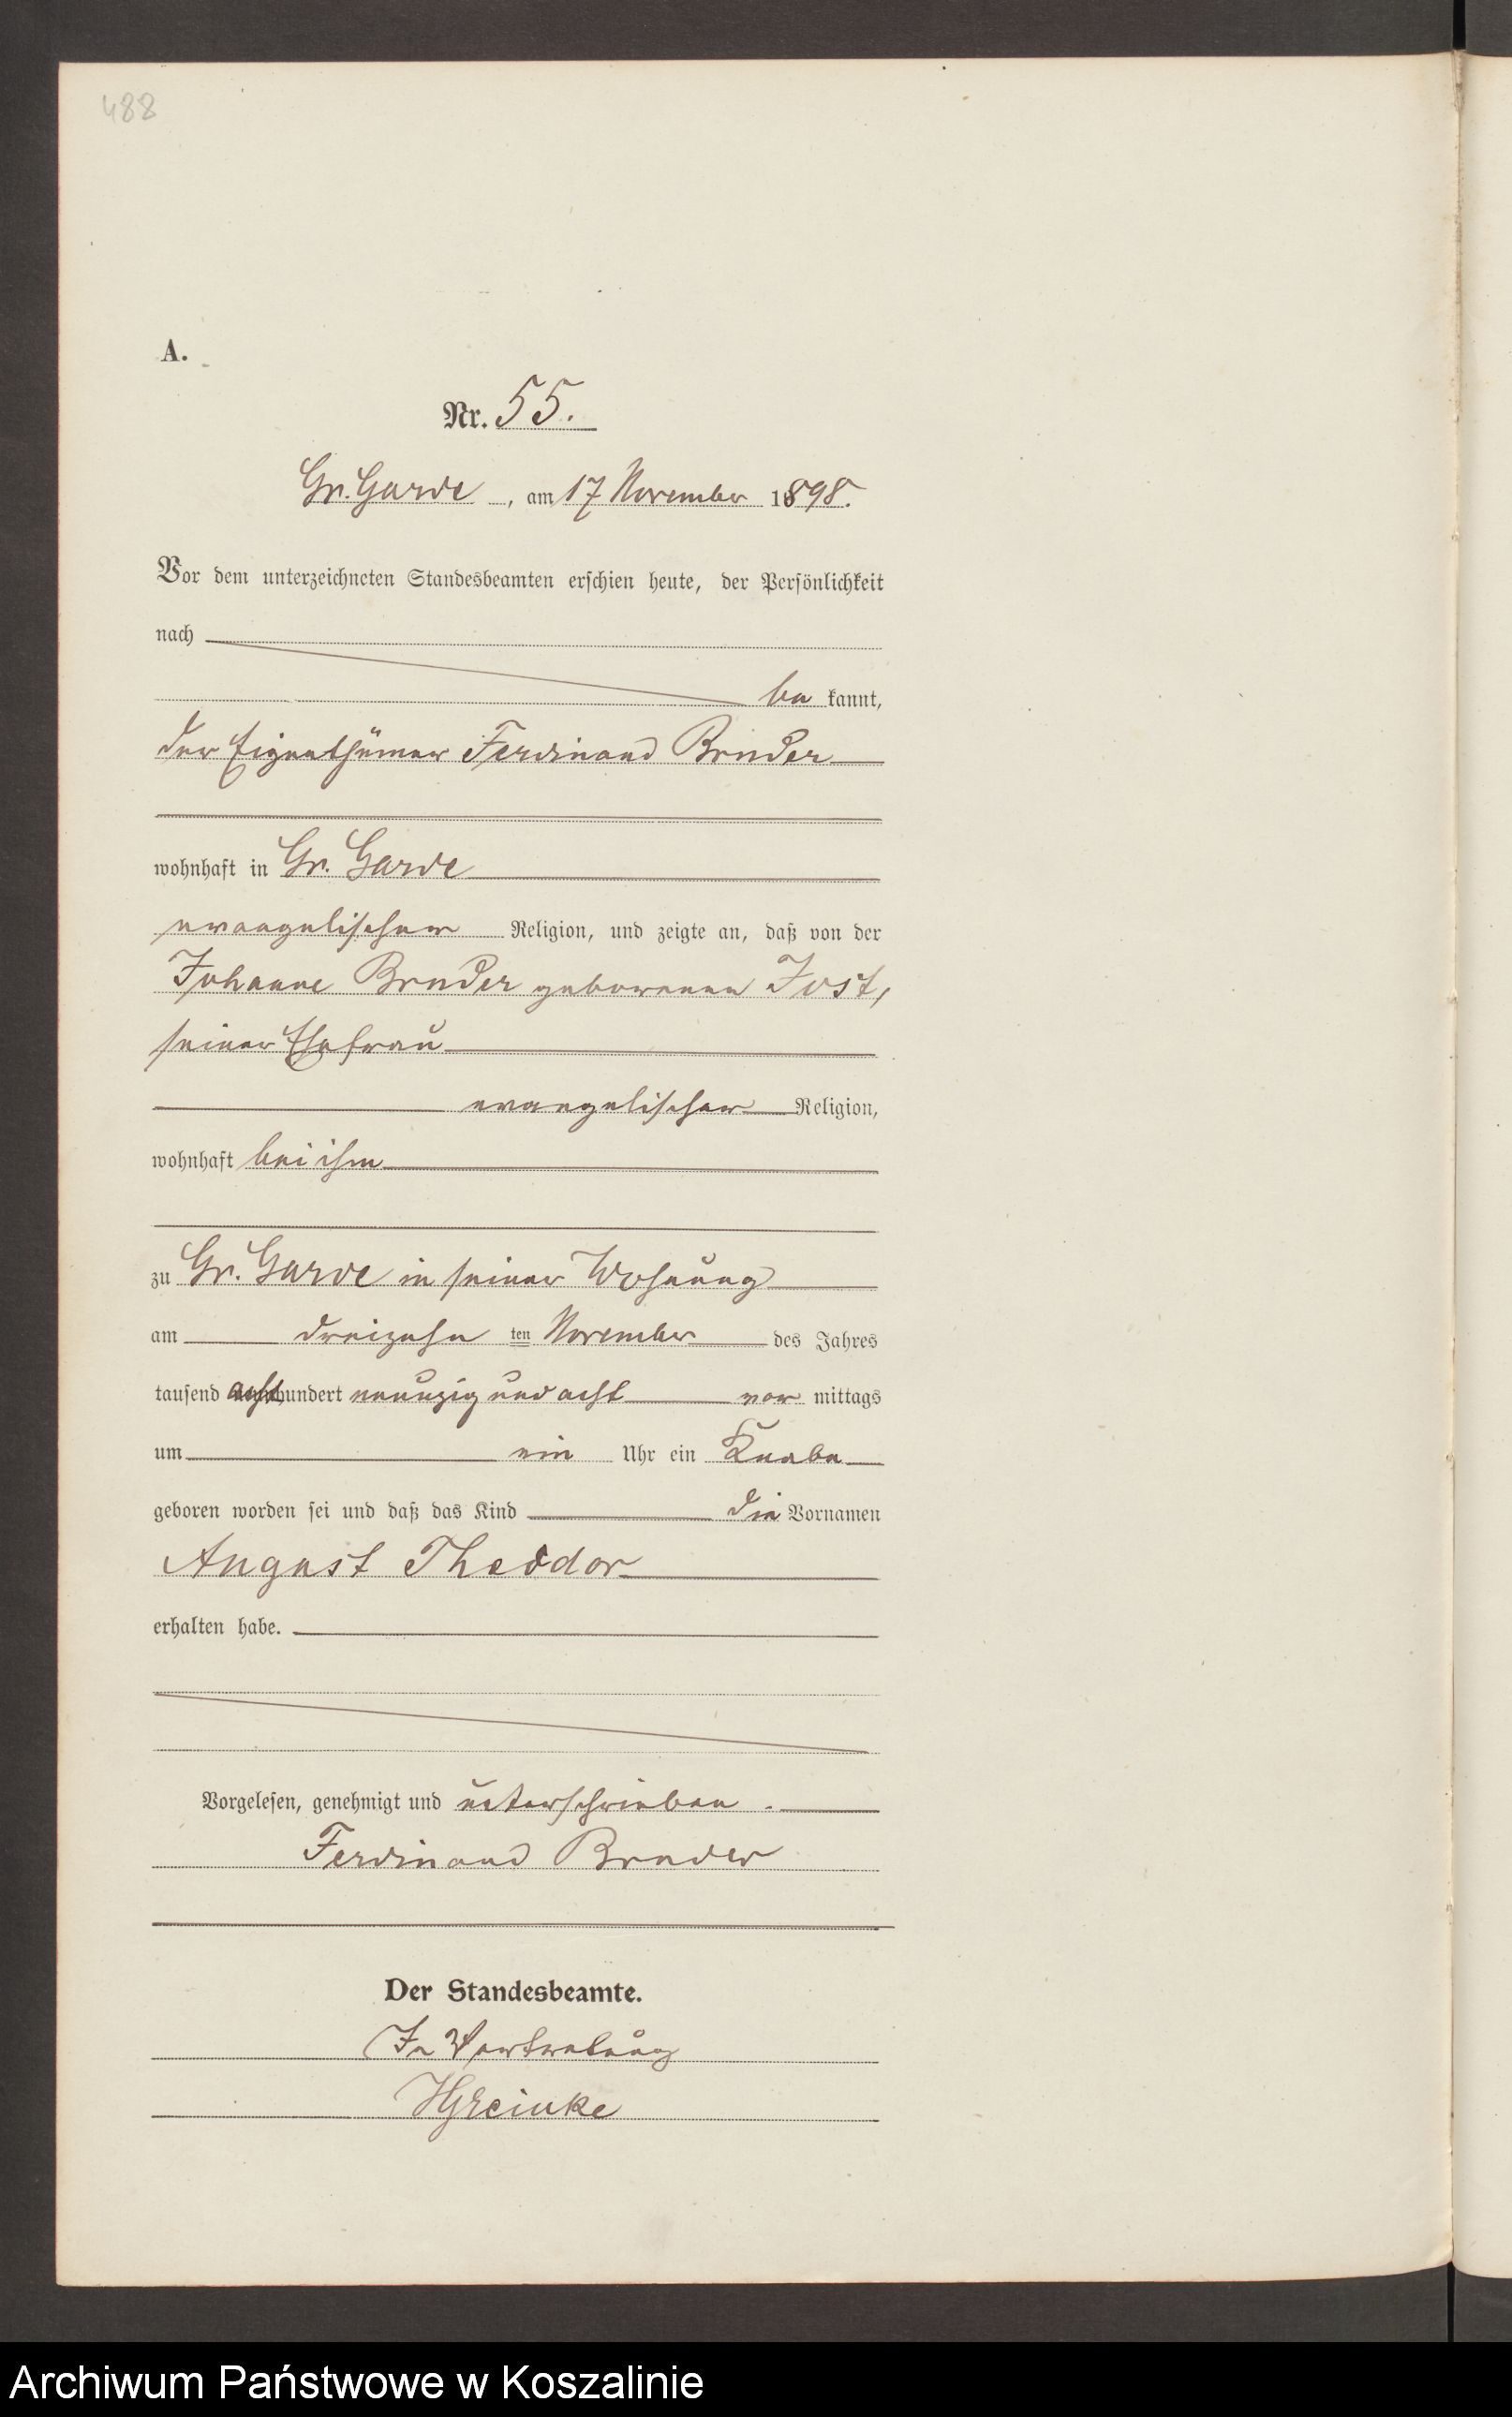 488
A.
Nr. 55.
Gr. Garde, am 17 November 1898.
Vor dem unterzeichneten Standesbeamten erschien heute, der Persönlichkeit
nach
be kannt,
der Eigenthümer Ferdinand Bruder
wohnhaft in Gr. Garde
evangelischer Religion, und zeigte an, daß von der
Johanne Bruder geborenen Jost,
seiner Ehefrau
evangelischer Religion,
wohnhaft bei ihm
zu Gr. Garde in seiner Wohnung
am dreizehn ten November des Jahres
tausend acht hundert neunzig und acht vor mittags
um ein Uhr ein Knabe
geboren worden sei und daß das Kind die Vornamen
August Theodor
erhalten habe.
Vorgelesen, genehmigt und unterschrieben.
Ferdinand Bruder
Der Standesbeamte.
In Vertretung
Archiwum Państwowe w Koszalinie